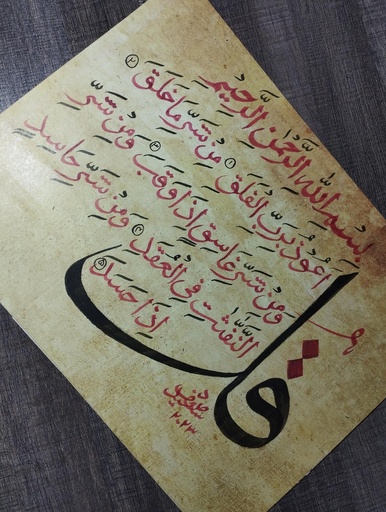 بِسْمِ اللّٰهِ الرَّحْمٰنِ الرَّحِيْمِ
قُلْ
اَعُوْذُ بِرَبِّ الْفَلَقِ ۱ مِنْ شَرِّ مَا خَلَقَ ۲
وَمِنْ شَرِّ غَاسِقٍ اِذَا وَقَبَ ۳ وَمِنْ شَرِّ
النَّفّٰثٰتِ فِي الْعُقَدِ ۴ وَمِنْ شَرِّ حَاسِدٍ
اِذَا حَسَدَ ۵
٢٠٢٣